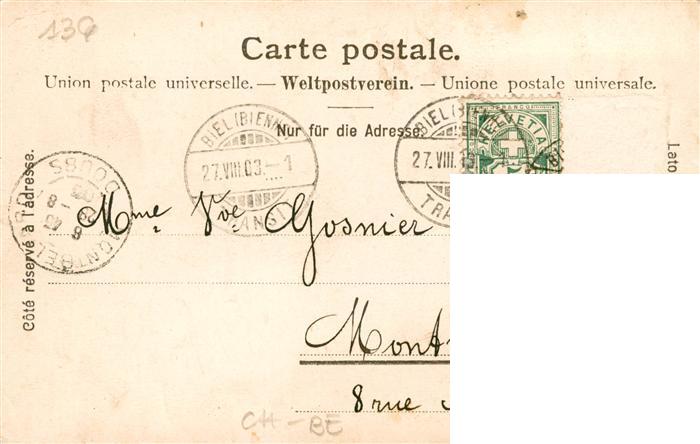 139
Carte postale.
Union postale universelle. — Weltpostverein. — Unione postale universale.
Nur für die Adresse.
BIEL (BIENNE)
27.VIII.03.–1
TRANSIT
BIEL (BIENNE)
27.VIII.03
TRA
FRANCO
HELVETIA
DOUBS
MONTBEL
Côté réservé à l'adresse.
Lato
Mme Vve Gosnier
Mont
8 rue
CH – BE